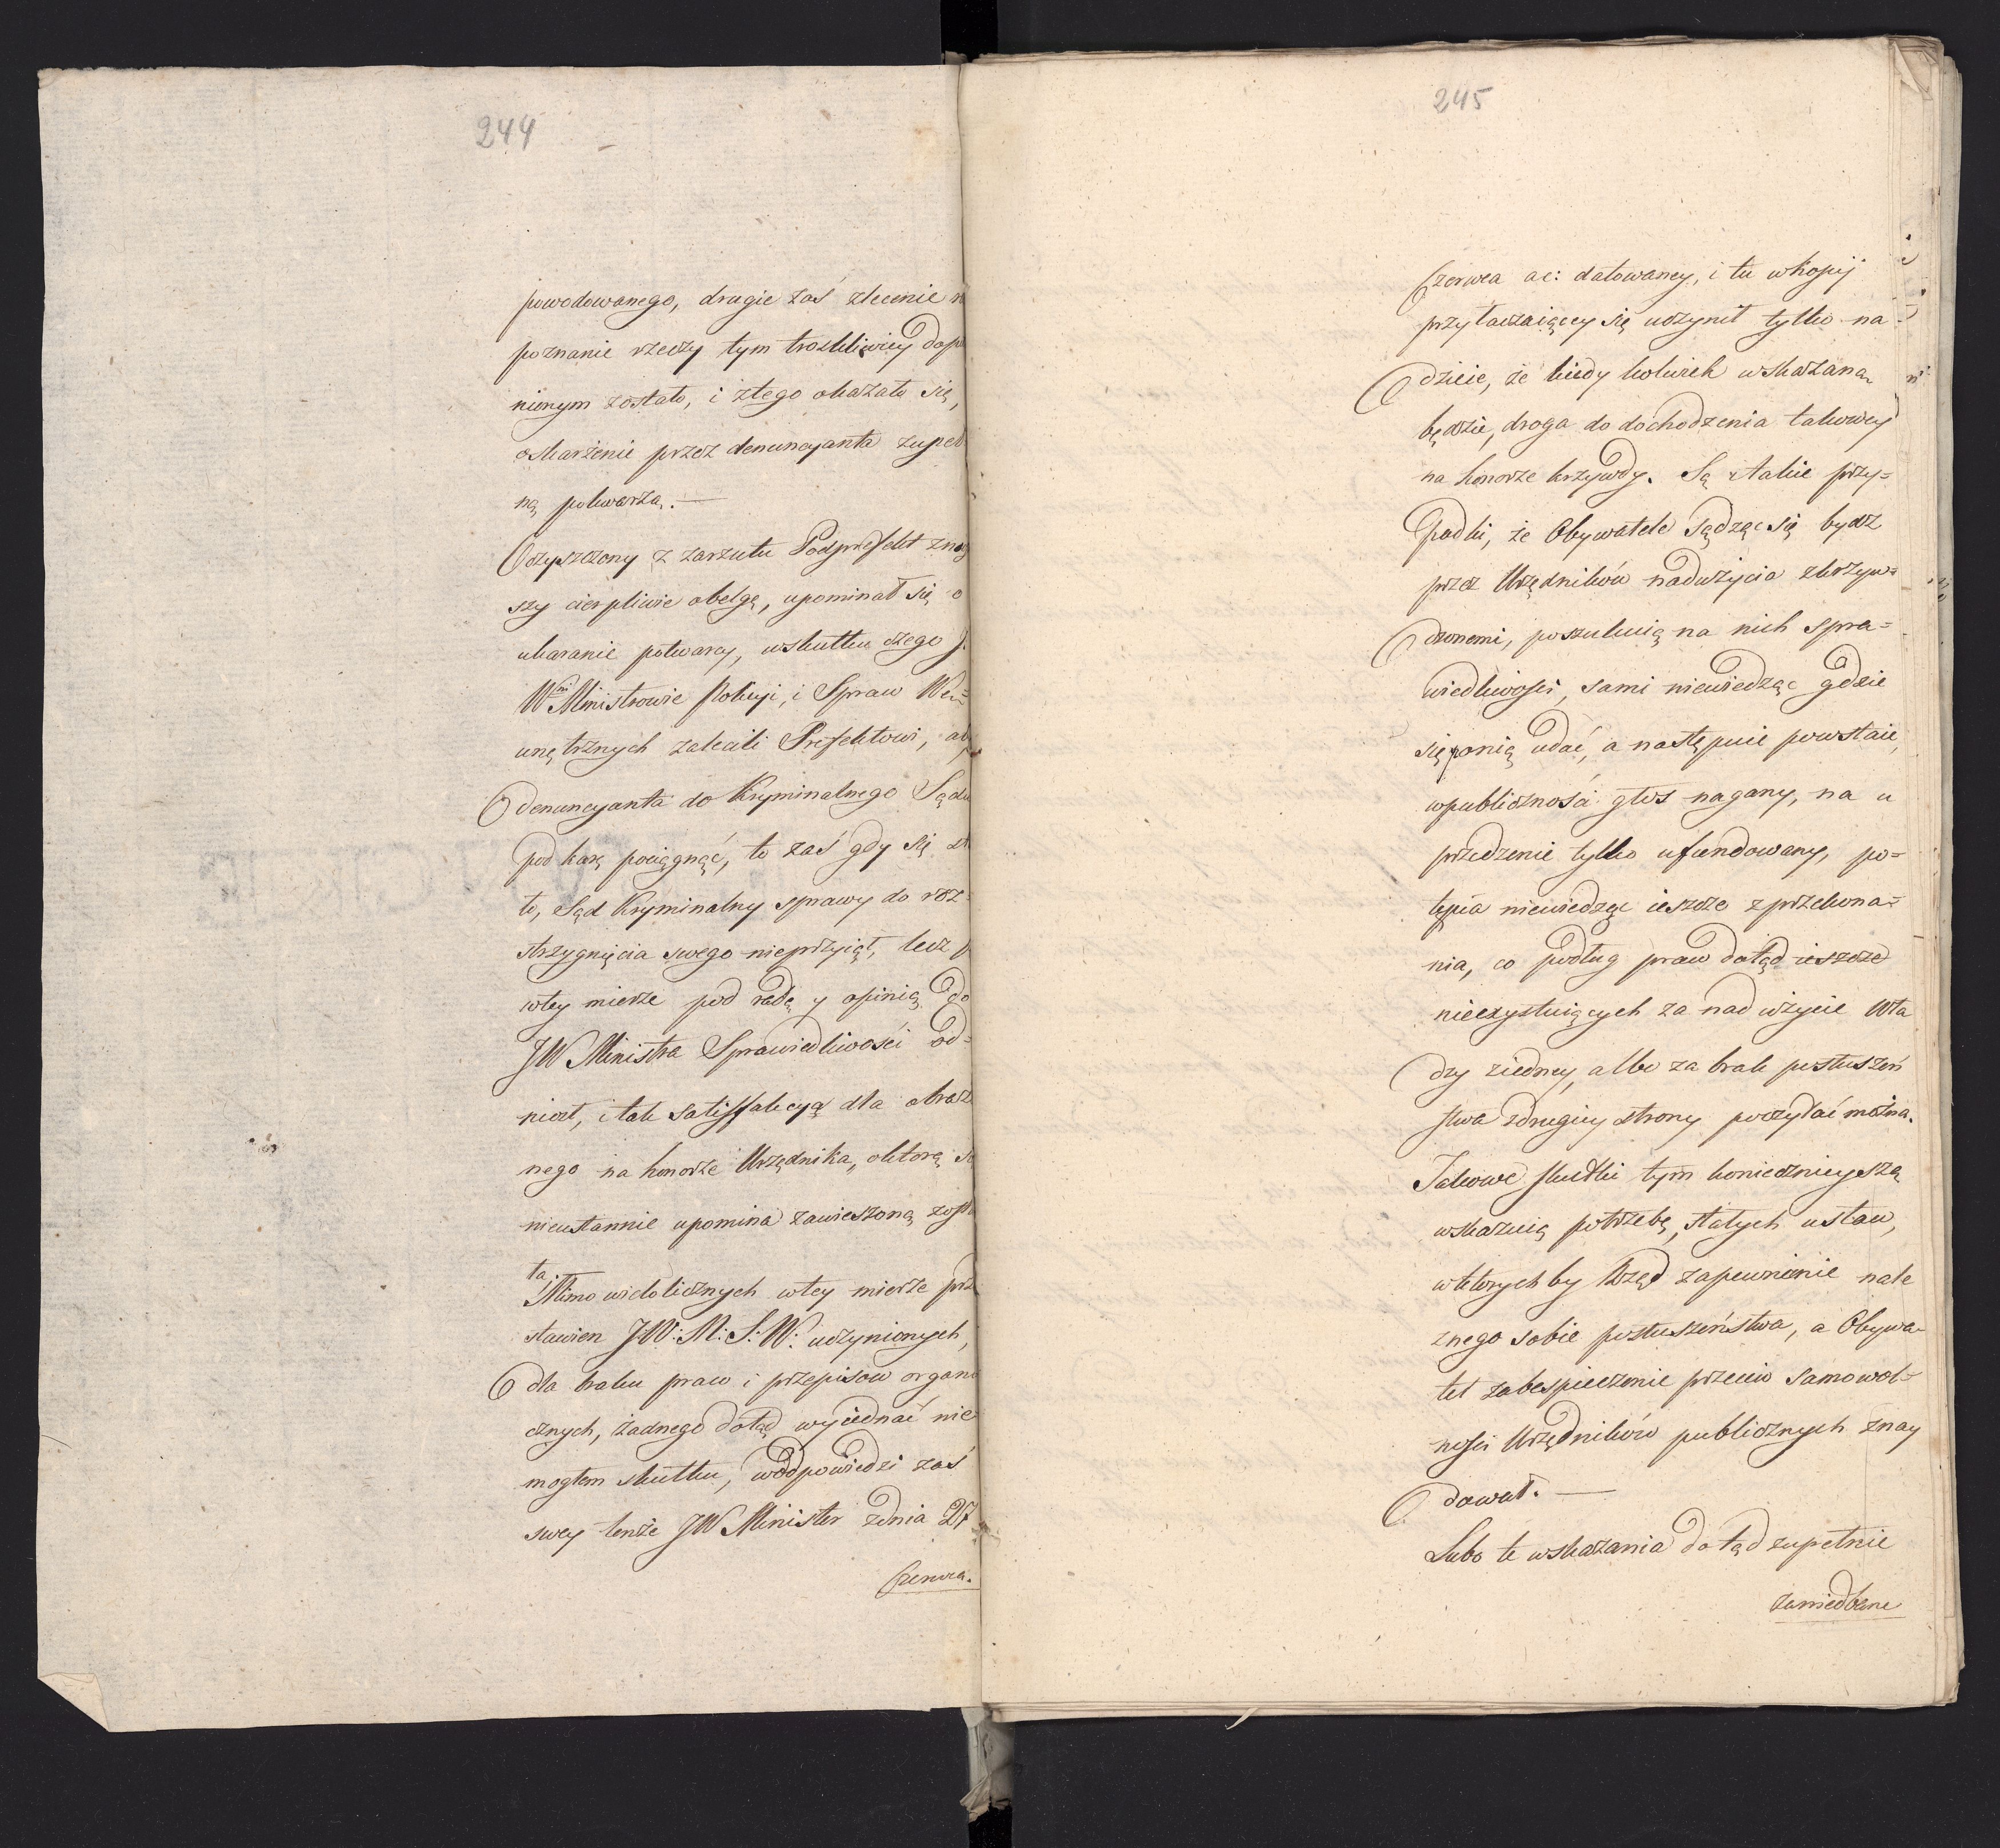 244
powodowanego, drugie zaś zlecenie n
poznanie rzeczy tym troskliwiey dope
nionym zostało, i ztego okazało się,
oskarżenie przez denuncyanta zupeł
ną potwarzą. —
Oczyszczony z zarzutu Podprefekt zno
szy cierpliwie obelgę, upominał się o
ukaranie potwarcy, wskutku czego J.
W^ni Ministrowie Policyi, i Spraw We=
wnętrznych zalecili Prefektowi, ab
denuncyanta do Kryminalnego Sądu
pod karę pociągnąć, to zaś gdy się st
ło, Sąd Kryminalny sprawy do roz=
strzygnięcia swego nieprzyiął, lecz
wtey mierze pod radę y opinią do
JW Ministra Sprawiedliwości od=
niosł, i tak satisfakcyą dla obraz
nego na honorze Urzędnika, októrą s
nieustannie upomina zawieszoną zost
ła.
Mimo widolicznych wtey mierze prz
stawien JW: M: S: W: uczynionych,
dla braku praw i przepisow organi
cznych, żadnego dotąd wyiednać nie
mogłem skutku, wodpowiedzi zaś
swey tenże JW Minister zdnia 27
Czerwca.
245
Czerwca ac: datowaney, i tu wkopij
przytaczaiącey się uczynił tylko na=
dzieię, że kiedy kolwiek wskazana
będzie, droga do dochodzenia takowey
na honorze krzywdy. Są takie przy=
padki, że Obywatele sądząc się bydź
przez Urzędników nadużycia skrzyw=
dzonemi, poszukuią na nich spra=
wiedliwości, sami niewiedząc gdzie
się ponią udać, a następnie powstaie
wpubliczności głos nagany, na u
przedzenie tylko ufundowany, po=
tępia niewiedząc ieszcze zprzekona=
nia, co podług praw dotąd ieszcze
nieexystuiących za nadużycie Wła
dzy ziedney, albo za brak posłuszeń
stwa zdrugiey strony poczytać można.
Takowe skutki tym konieczniey szą
wskazuią potrzebę, stałych ustaw,
wktorych by Rząd zapewnienie nale
żnego sobie posłuszeństwa, a Obywa=
tel zabespieczenie przeciw samowol=
ności Urzędników publicznych znay
dował. —
Lubo te wskazania dotąd zupełnie
zaniedbane